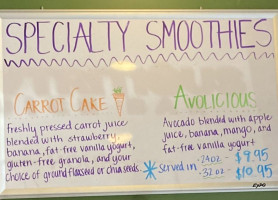 SPECIALTY SMOOTHIES
CARROT CAKE
freshly pressed carrot juice
blended with strawberry,
banana, fat-free vanilla yogurt,
gluten-free granola, and your
choice of ground flaxseed or chia seeds.
AVOLICIOUS
Avocado blended with apple
juice, banana, mango, and
fat-free vanilla yogurt
Served in -24oz- $9.95
-32oz- $10.95